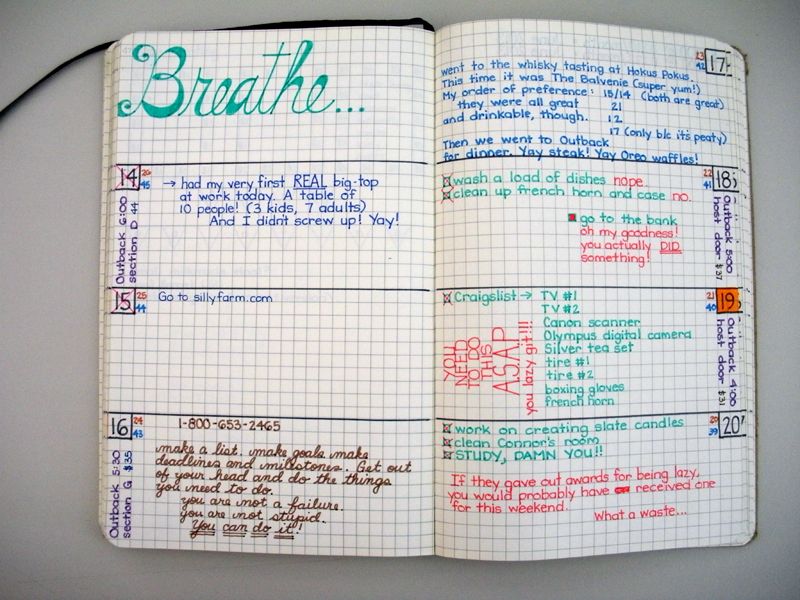 Breathe...
14
26
45
Outback 6:00
section D 44
→ had my very first REAL big-top
at work today. A table of
10 people! (3 kids, 7 adults)
And I didn't screw up! Yay!
15
25
44
Go to sillyfarm.com
16
24
43
Outback 5:30
section G $35
1-800-653-2465
make a list. make goals make
deadlines and milestones. Get out
of your head and do the things
you need to do.
you are not a failure.
you are not stupid.
You can do it!
17
23
42
went to the whisky tasting at Hokus Pokus.
This time it was The Balvenie (super yum!)
My order of preference: 15/14 (both are great)
they were all great 21
and drinkable, though. 12
17 (only b/c it's peaty)
Then we went to Outback
for dinner. Yay steak! Yay Oreo waffles!
18
22
41
Outback 5:00
host door $37
wash a load of dishes nope.
clean up french horn and case no.
go to the bank
oh my goodness!
you actually DID
something!
19
21
40
Outback 4:00
host door $31
Craigslist → TV #1
TV #2
Canon scanner
Olympus digital camera
Silver tea set
tire #1
tire #2
boxing gloves
french horn
YOU
NEED
TO DO
THIS
ASAP
you lazy git!!!
20
20
39
work on creating slate candles
clean Connor's room
STUDY, DAMN YOU!!
If they gave out awards for being lazy,
you would probably have received one
for this weekend.
What a waste...